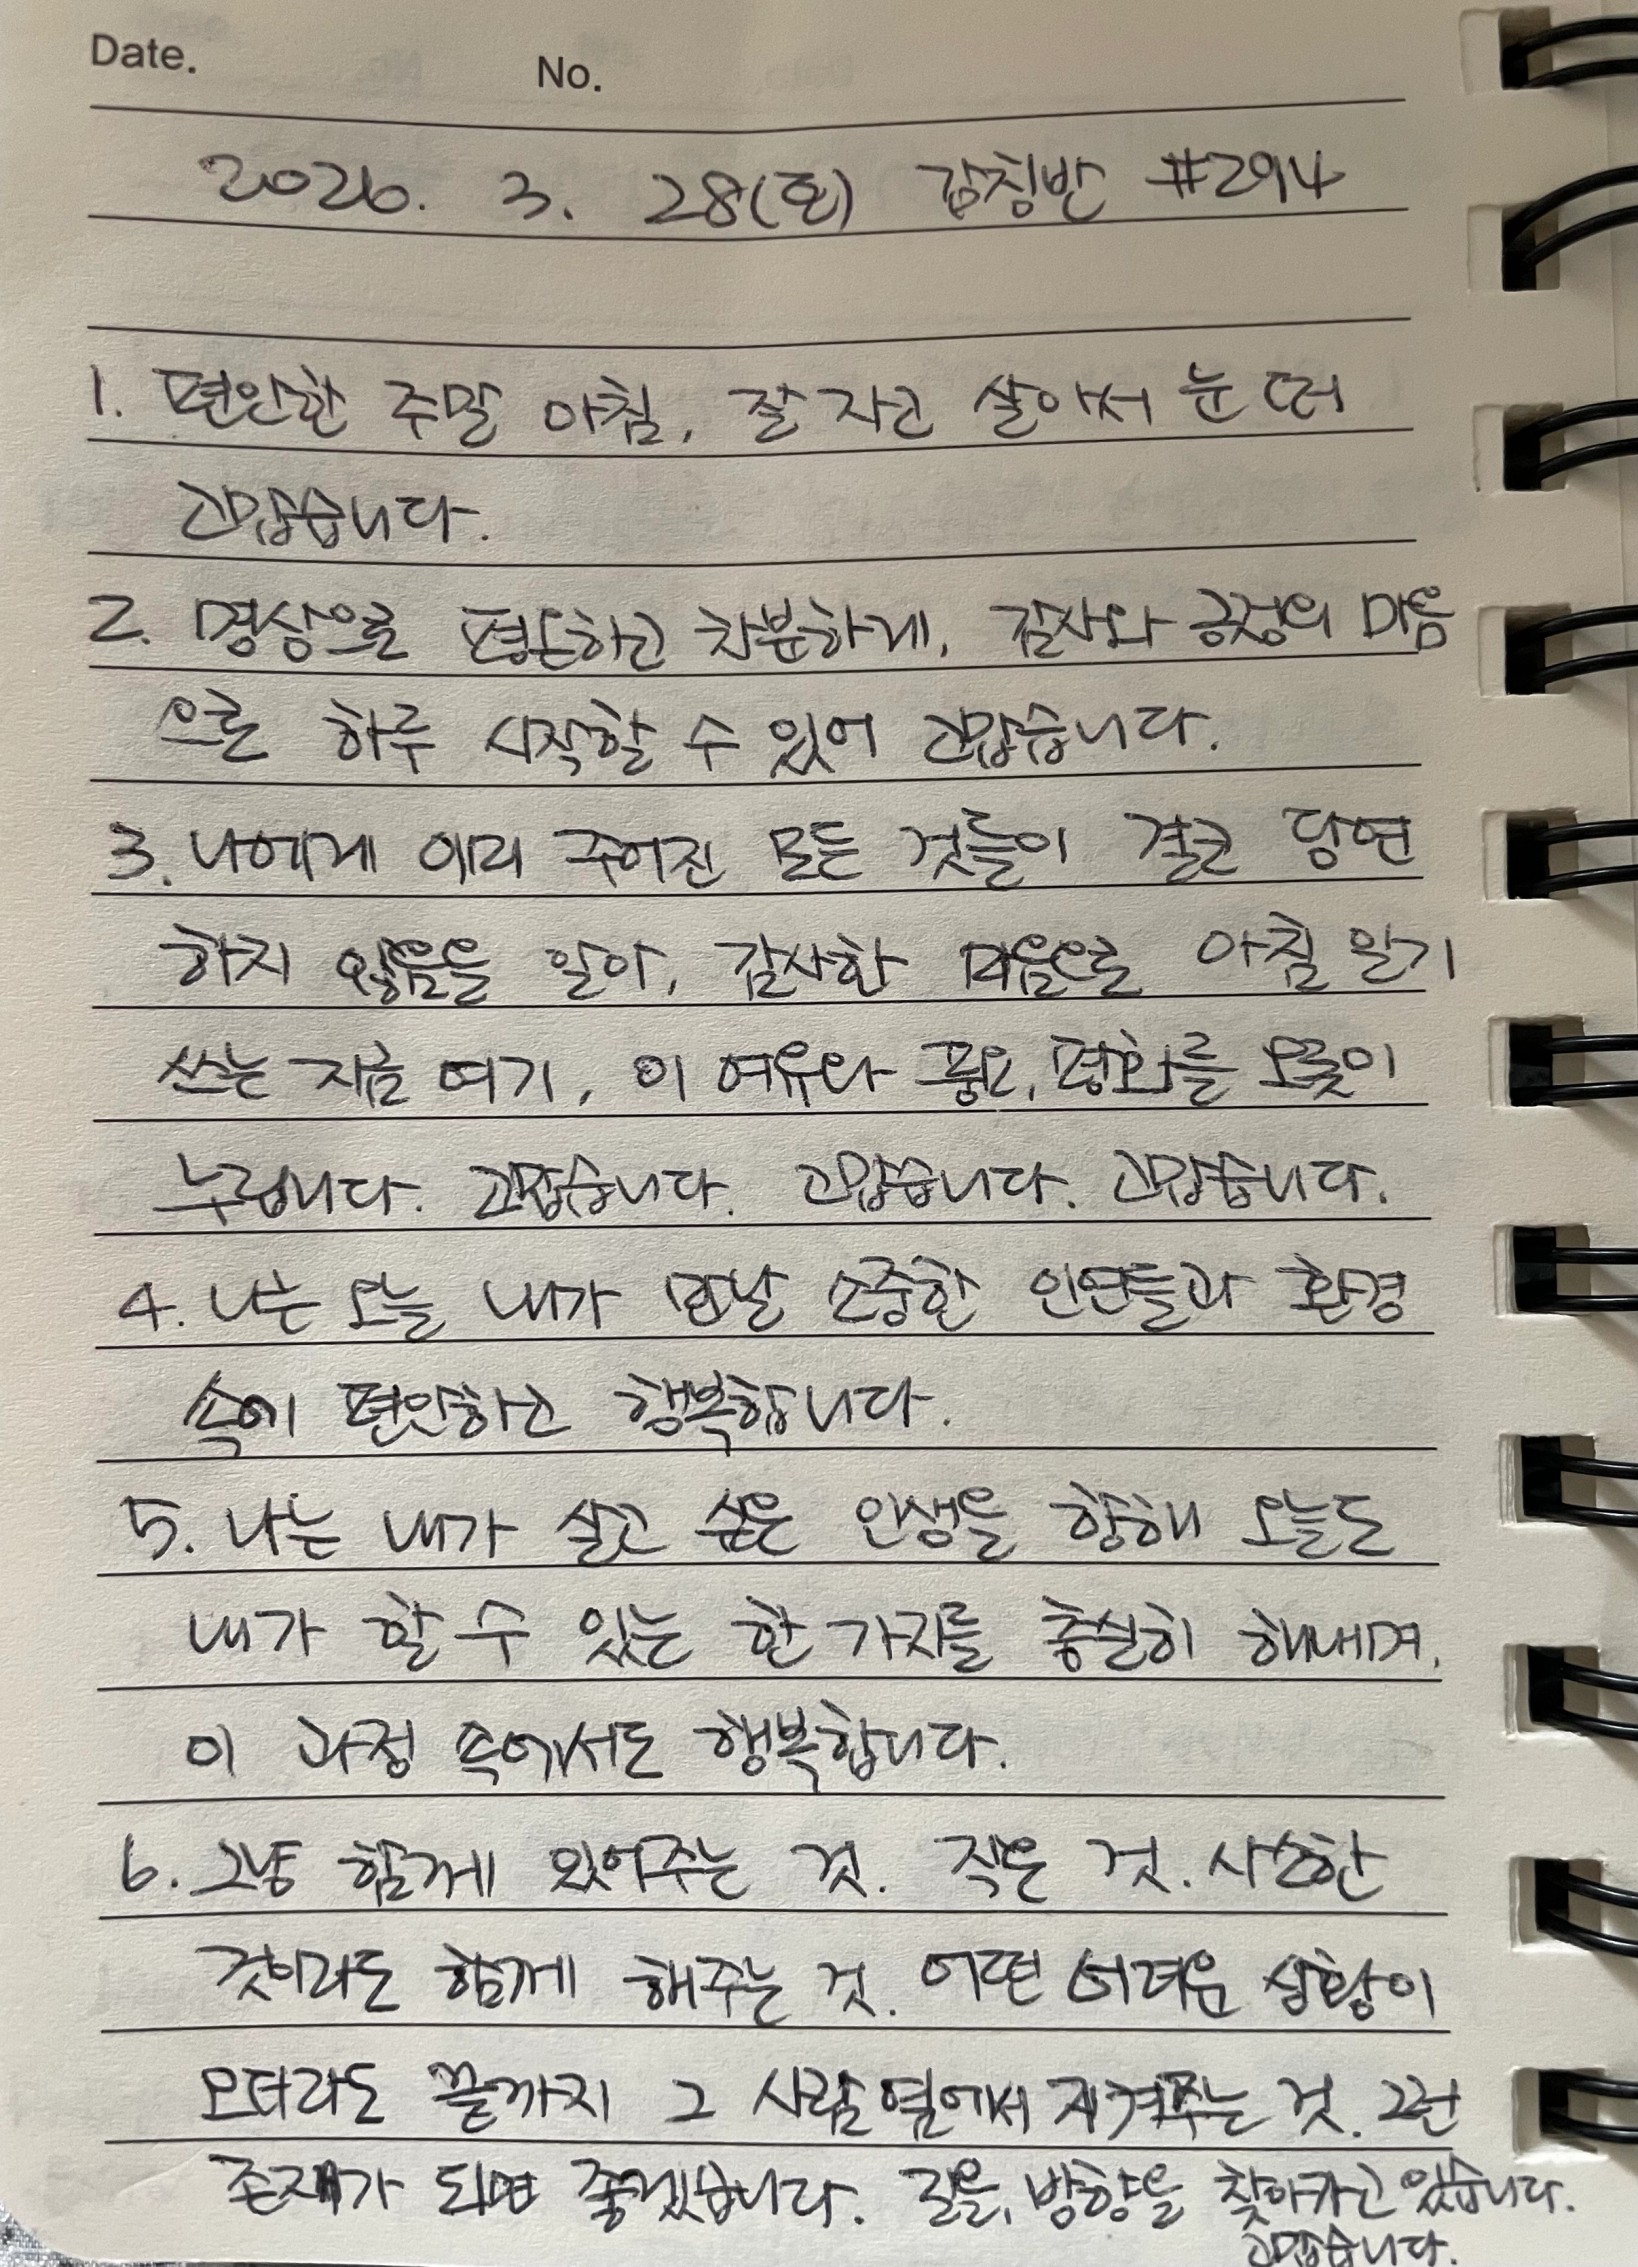 Date.
No.
2026. 3. 28(토) 감칭반 #294
1. 편안한 주말 아침, 잘 자고 살아서 눈 떠
고맙습니다.
2. 명상으로 평온하고 차분하게, 감사와 긍정의 마음
으로 하루 시작할 수 있어 고맙습니다.
3. 나에게 이미 주어진 모든 것들이 결코 당연
하지 않음을 알아, 감사한 마음으로 아침 일기
쓰는 지금 여기, 이 여유와 풍요, 평화를 오롯이
누립니다. 고맙습니다. 고맙습니다. 고맙습니다.
4. 나는 오늘 내가 만날 소중한 인연들과 환경
속에 편안하고 행복합니다.
5. 나는 내가 살고 싶은 인생을 향해 오늘도
내가 할 수 있는 한 가지를 충실히 해내며,
이 과정 속에서도 행복합니다.
6. 그냥 함께 있어주는 것. 작은 것. 사소한
것이라도 함께 해주는 것. 어떤 어려운 상황이
오더라도 끝까지 그 사람 옆에서 지켜주는 것. 그런
존재가 되면 좋겠습니다. 길을, 방향을 찾아가고 있습니다.
고맙습니다.